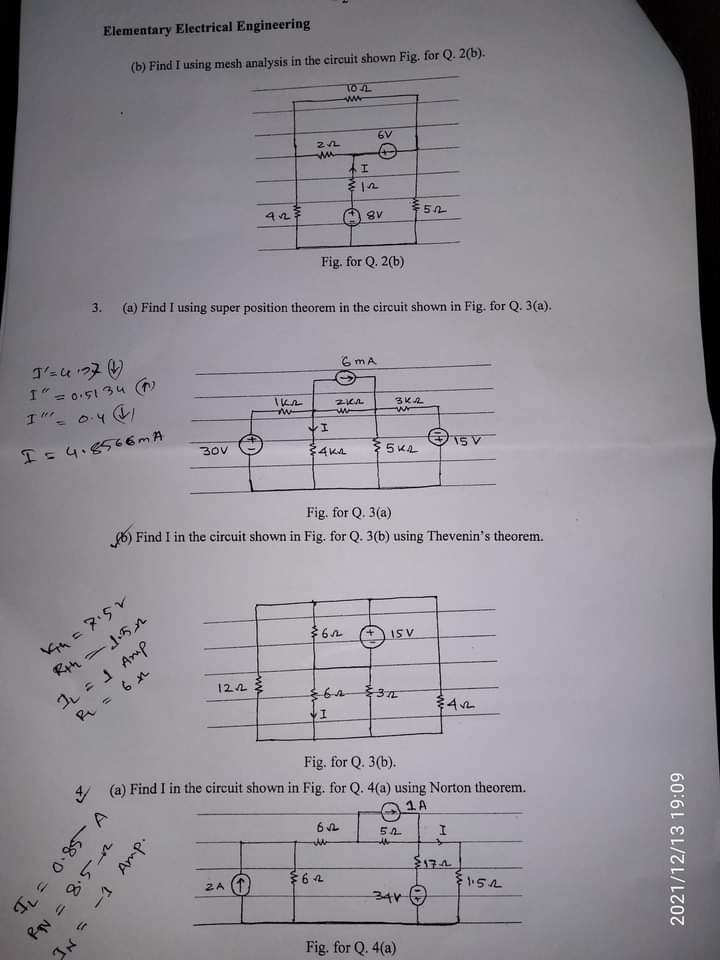 Elementary Electrical Engineering
(b) Find I using mesh analysis in the circuit shown Fig. for Q. 2(b).
10Ω
2Ω
6V
I
1Ω
4Ω
8V
5Ω
Fig. for Q. 2(b)
3. (a) Find I using super position theorem in the circuit shown in Fig. for Q. 3(a).
I" = 0.5134 (↑)
I''' = 0.4 (↓)
I = 4.8566mA
6 mA
1KΩ
2KΩ
3KΩ
I
30V
4KΩ
5KΩ
15V
Fig. for Q. 3(a)
(b) Find I in the circuit shown in Fig. for Q. 3(b) using Thevenin's theorem.
Vth = 7.5V
Rth = 1.5Ω
IL = 1 Amp
RL = 6Ω
6Ω
15V
12Ω
6Ω
3Ω
4Ω
I
Fig. for Q. 3(b).
4 (a) Find I in the circuit shown in Fig. for Q. 4(a) using Norton theorem.
IL = 0.85 A
RN = 8.5Ω
IN = -1 Amp.
1A
6Ω
5Ω
I
17Ω
2A
6Ω
34V
1.5Ω
Fig. for Q. 4(a)
2021/12/13 19:09